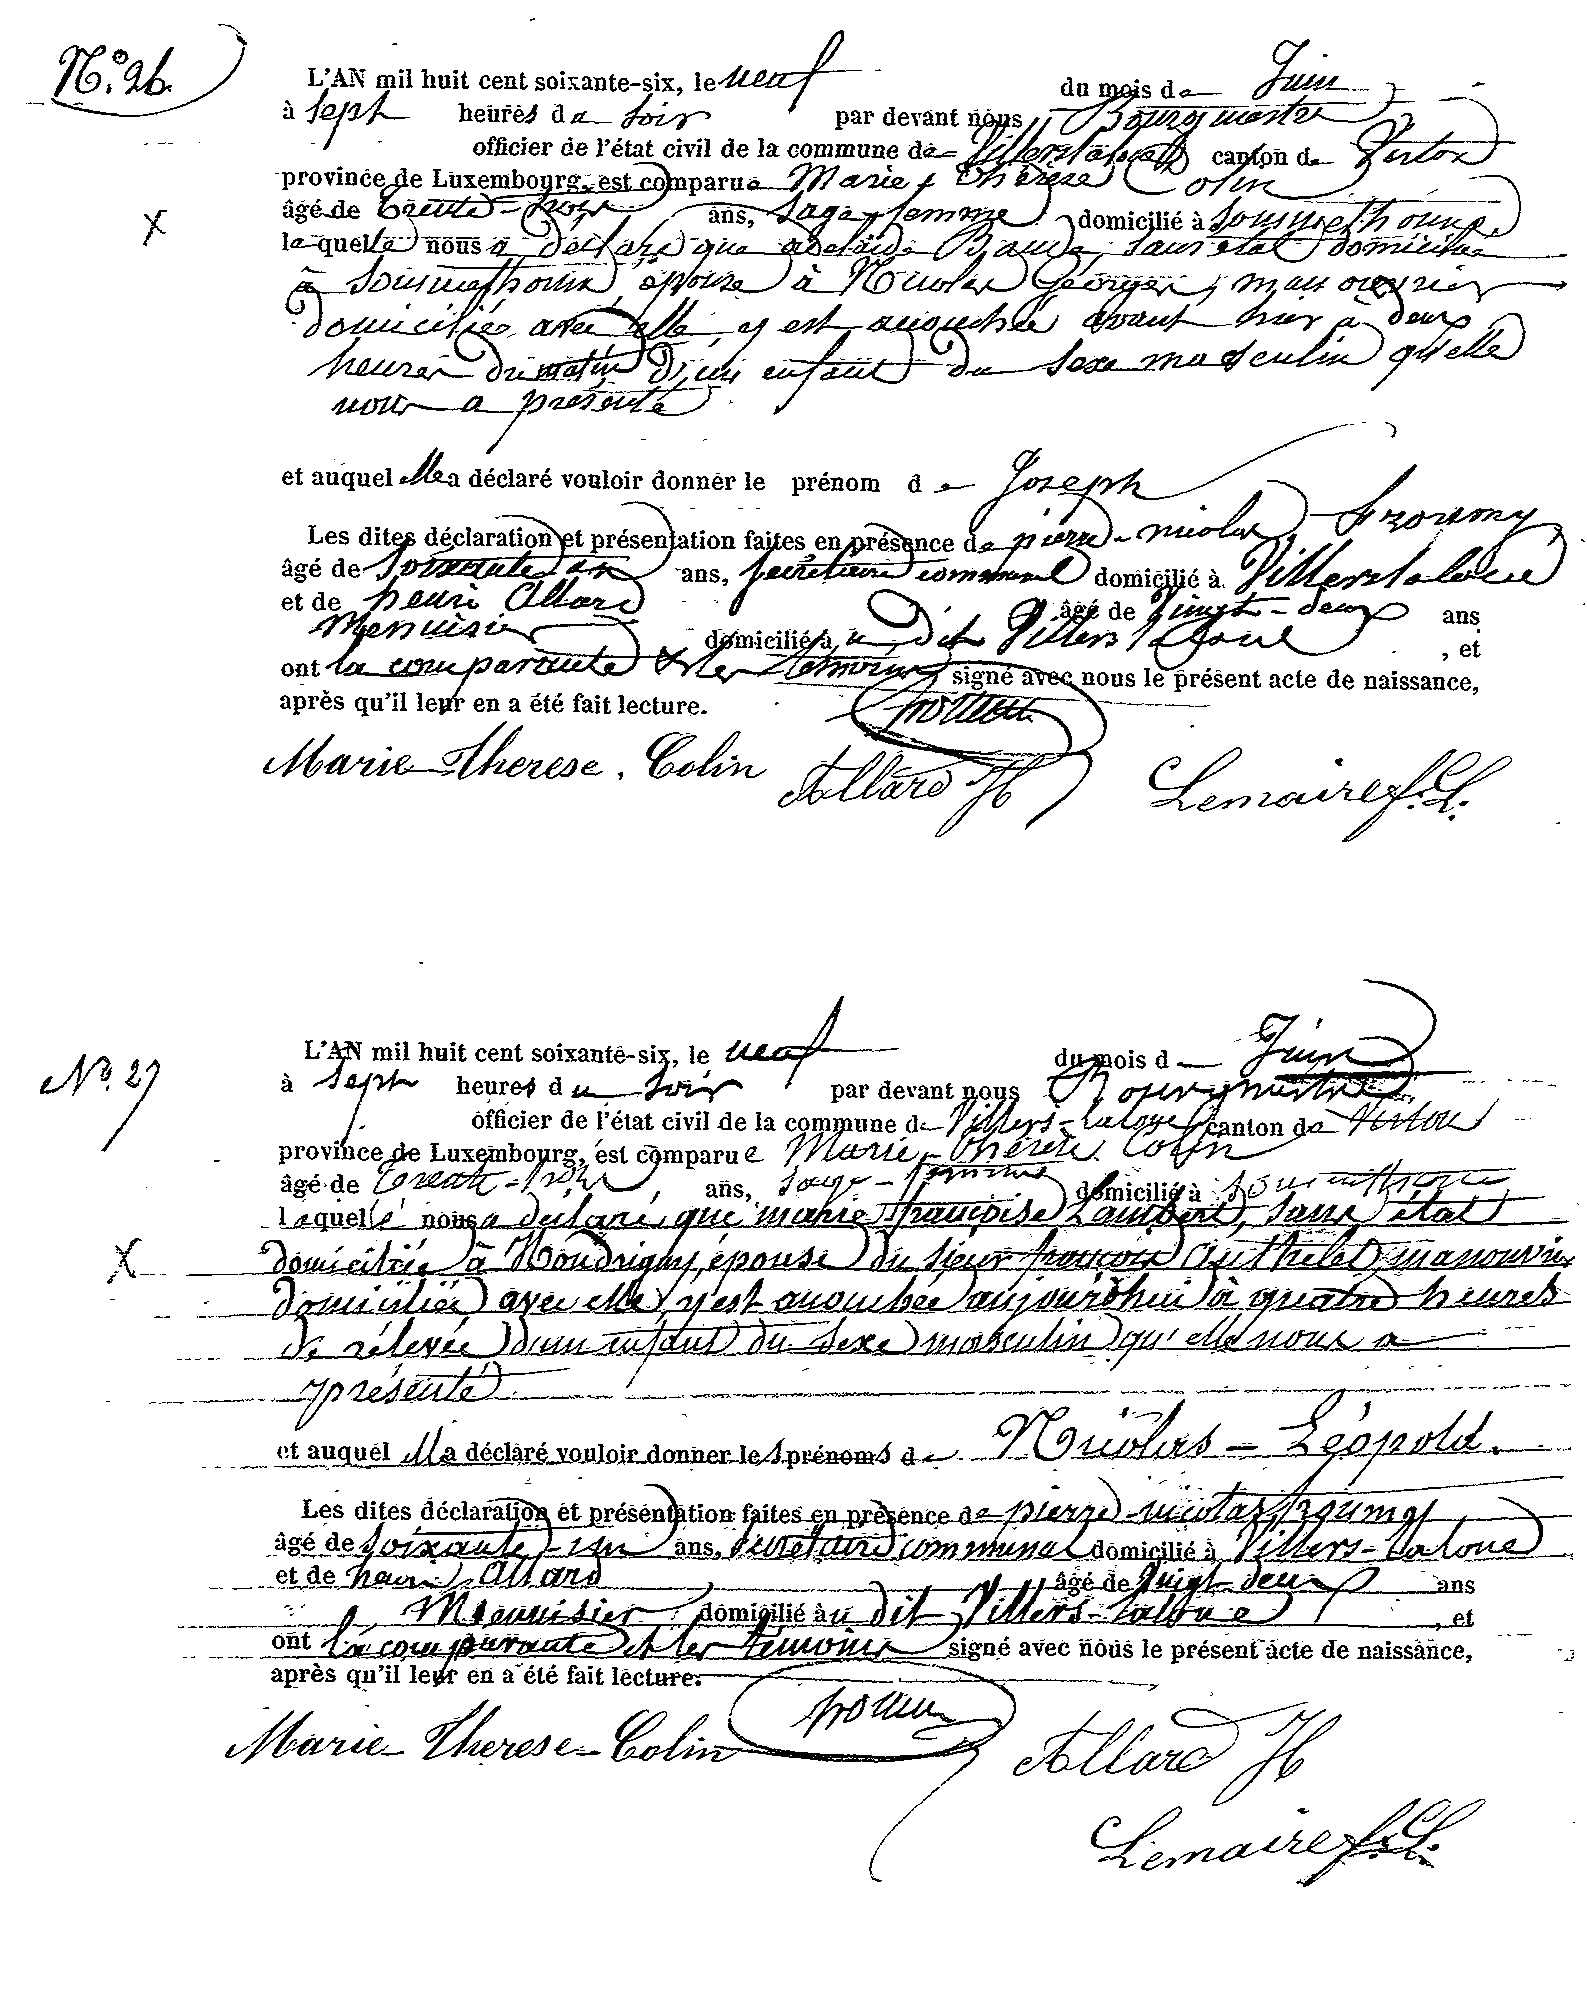 N.º 26.
L'AN mil huit cent soixante-six, le neuf du mois de Juin
à sept heures du soir par devant nous Bourgmestre
officier de l'état civil de la commune de Villers la loue canton de Virton
province de Luxembourg, est comparue Marie-thérèse Colin
âgé de trente-trois ans, sage-femme domicilié à Sommethonne
laquelle nous a déclaré que adelaïde sans état domiciliée
à Sommethonne, épouse à Nicolas Georges, manouvrier
domicilié avec elle, y est accouchée avant hier à deux
heures du matin d'un enfant du sexe masculin qu'elle
nous a présenté
et auquel elle a déclaré vouloir donner le prénom de Joseph
Les dites déclaration et présentation faites en présence de pierre-nicolas
âgé de Soixante un ans, secrétaire communal domicilié à Villers la loue
et de henri Allard âgé de Vingt-deux ans
Menuisier domicilié à u dit Villers la loue, et
ont la comparante & les témoins signé avec nous le présent acte de naissance,
après qu'il leur en a été fait lecture.
Marie-Therese. Colin Allard H Lemaire f.L.
X
Nº. 27
L'AN mil huit cent soixante-six, le neuf du mois d Juin
à sept heures du soir par devant nous Bourgmestre
officier de l'état civil de la commune de Villers-laloue canton de Virton
province de Luxembourg, est comparue Marie-thérèse Colin
âgé de trente-trois ans, sage-femme domicilié à Sommethonne
laquelle nous a déclaré que marie françoise Lambert, sans état
domiciliée à Houdrigny, épouse du sieur françois authelet, manouvrier
domicilié avec elle, y est accouchée aujourd'hui à quatre heures
de rélevée d'un enfant du sexe masculin qu'elle nous a
présenté
et auquel elle a déclaré vouloir donner les prénoms de Nicolas-Léopold.
Les dites déclaration et présentation faites en présence de pierre-nicolas
âgé de soixante-un ans, secrétaire communal domicilié à Villers-laloue
et de henri Allard âgé de Vingt deux ans
Menuisier domicilié au dit Villers-laloue, et
ont la comparante et les témoins signé avec nous le présent acte de naissance,
après qu'il leur en a été fait lecture.
Marie-Therese-Colin Allard H
Lemaire f.L.
X